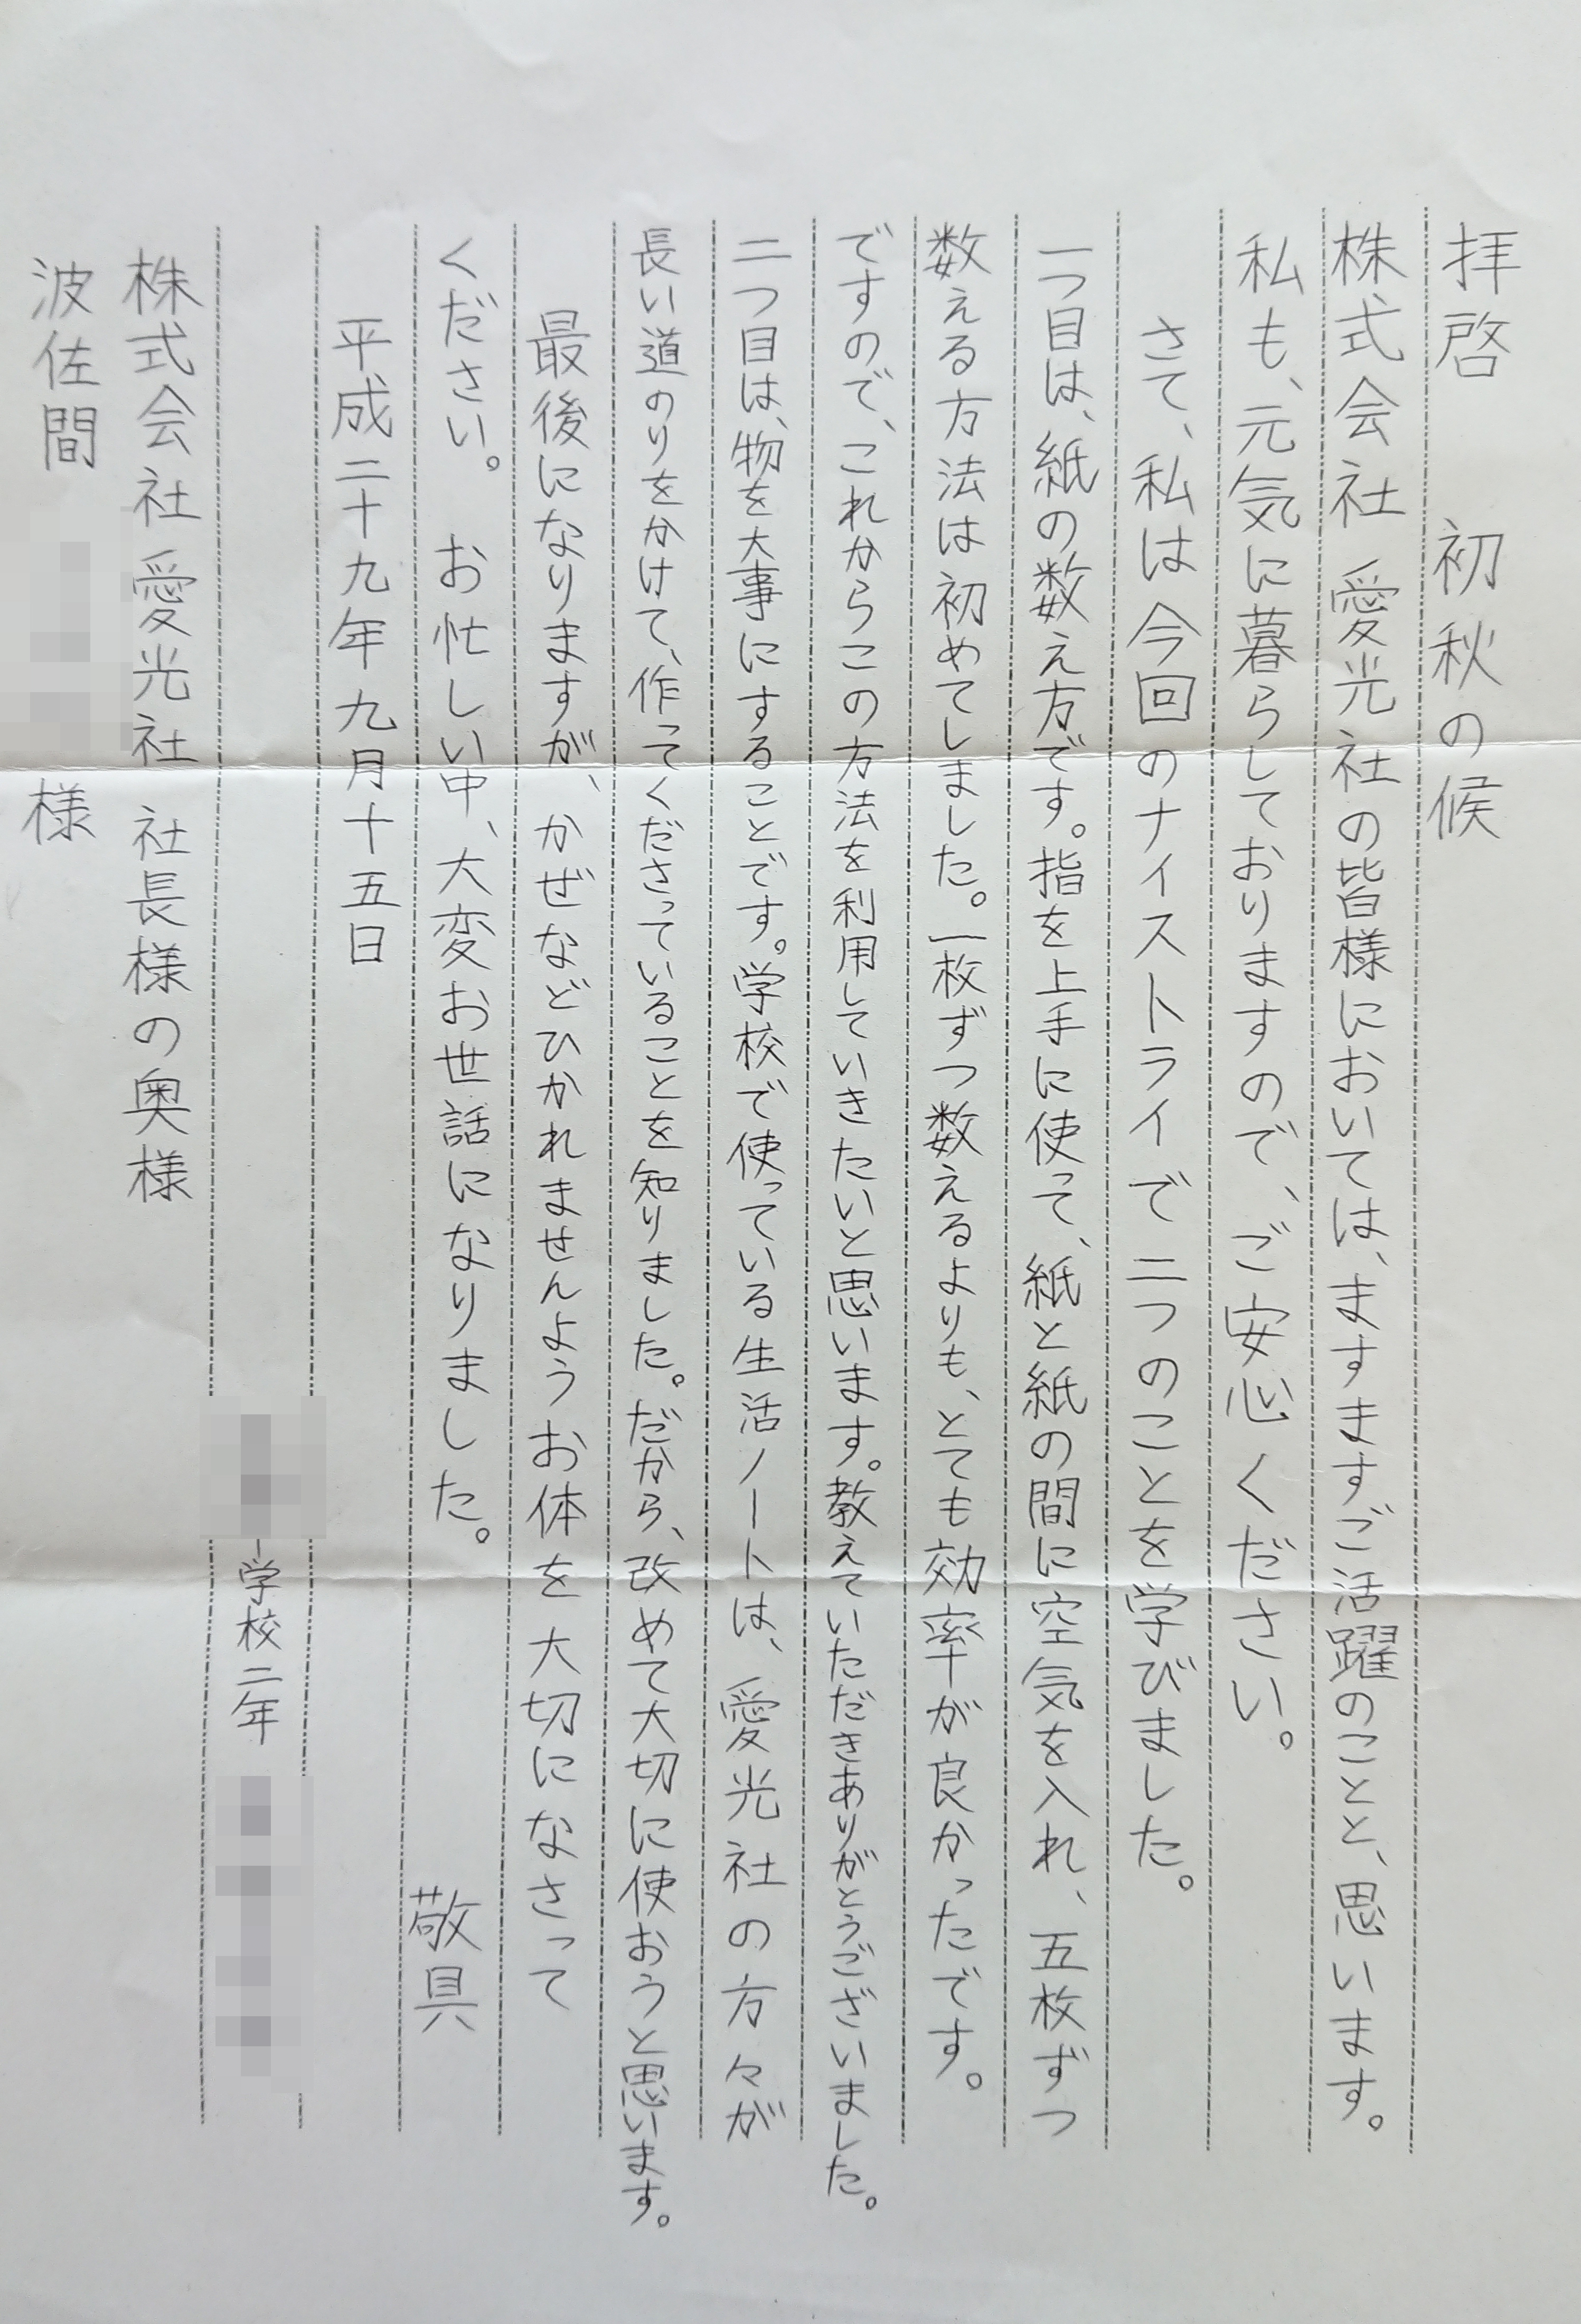 拝啓　初秋の候
株式会社愛光社の皆様においては、ますますご活躍のことと、思います。
私も、元気に暮らしておりますので、ご安心ください。
さて、私は今回のナイストライで二つのことを学びました。
一つ目は、紙の数え方です。指を上手に使って、紙と紙の間に空気を入れ、五枚ずつ
数える方法は初めてしました。一枚ずつ数えるよりも、とても効率が良かったです。
ですので、これからこの方法を利用していきたいと思います。教えていただきありがとうございました。
二つ目は、物を大事にすることです。学校で使っている生活ノートは、愛光社の方々が
長い道のりをかけて、作ってくださっていることを知りました。だから、改めて大切に使おうと思います。
最後になりますが、かぜなどひかれませんようお体を大切になさって
ください。　お忙しい中、大変お世話になりました。
敬具
平成二十九年九月十五日
学校二年
株式会社愛光社　社長様の奥様
波佐間　様